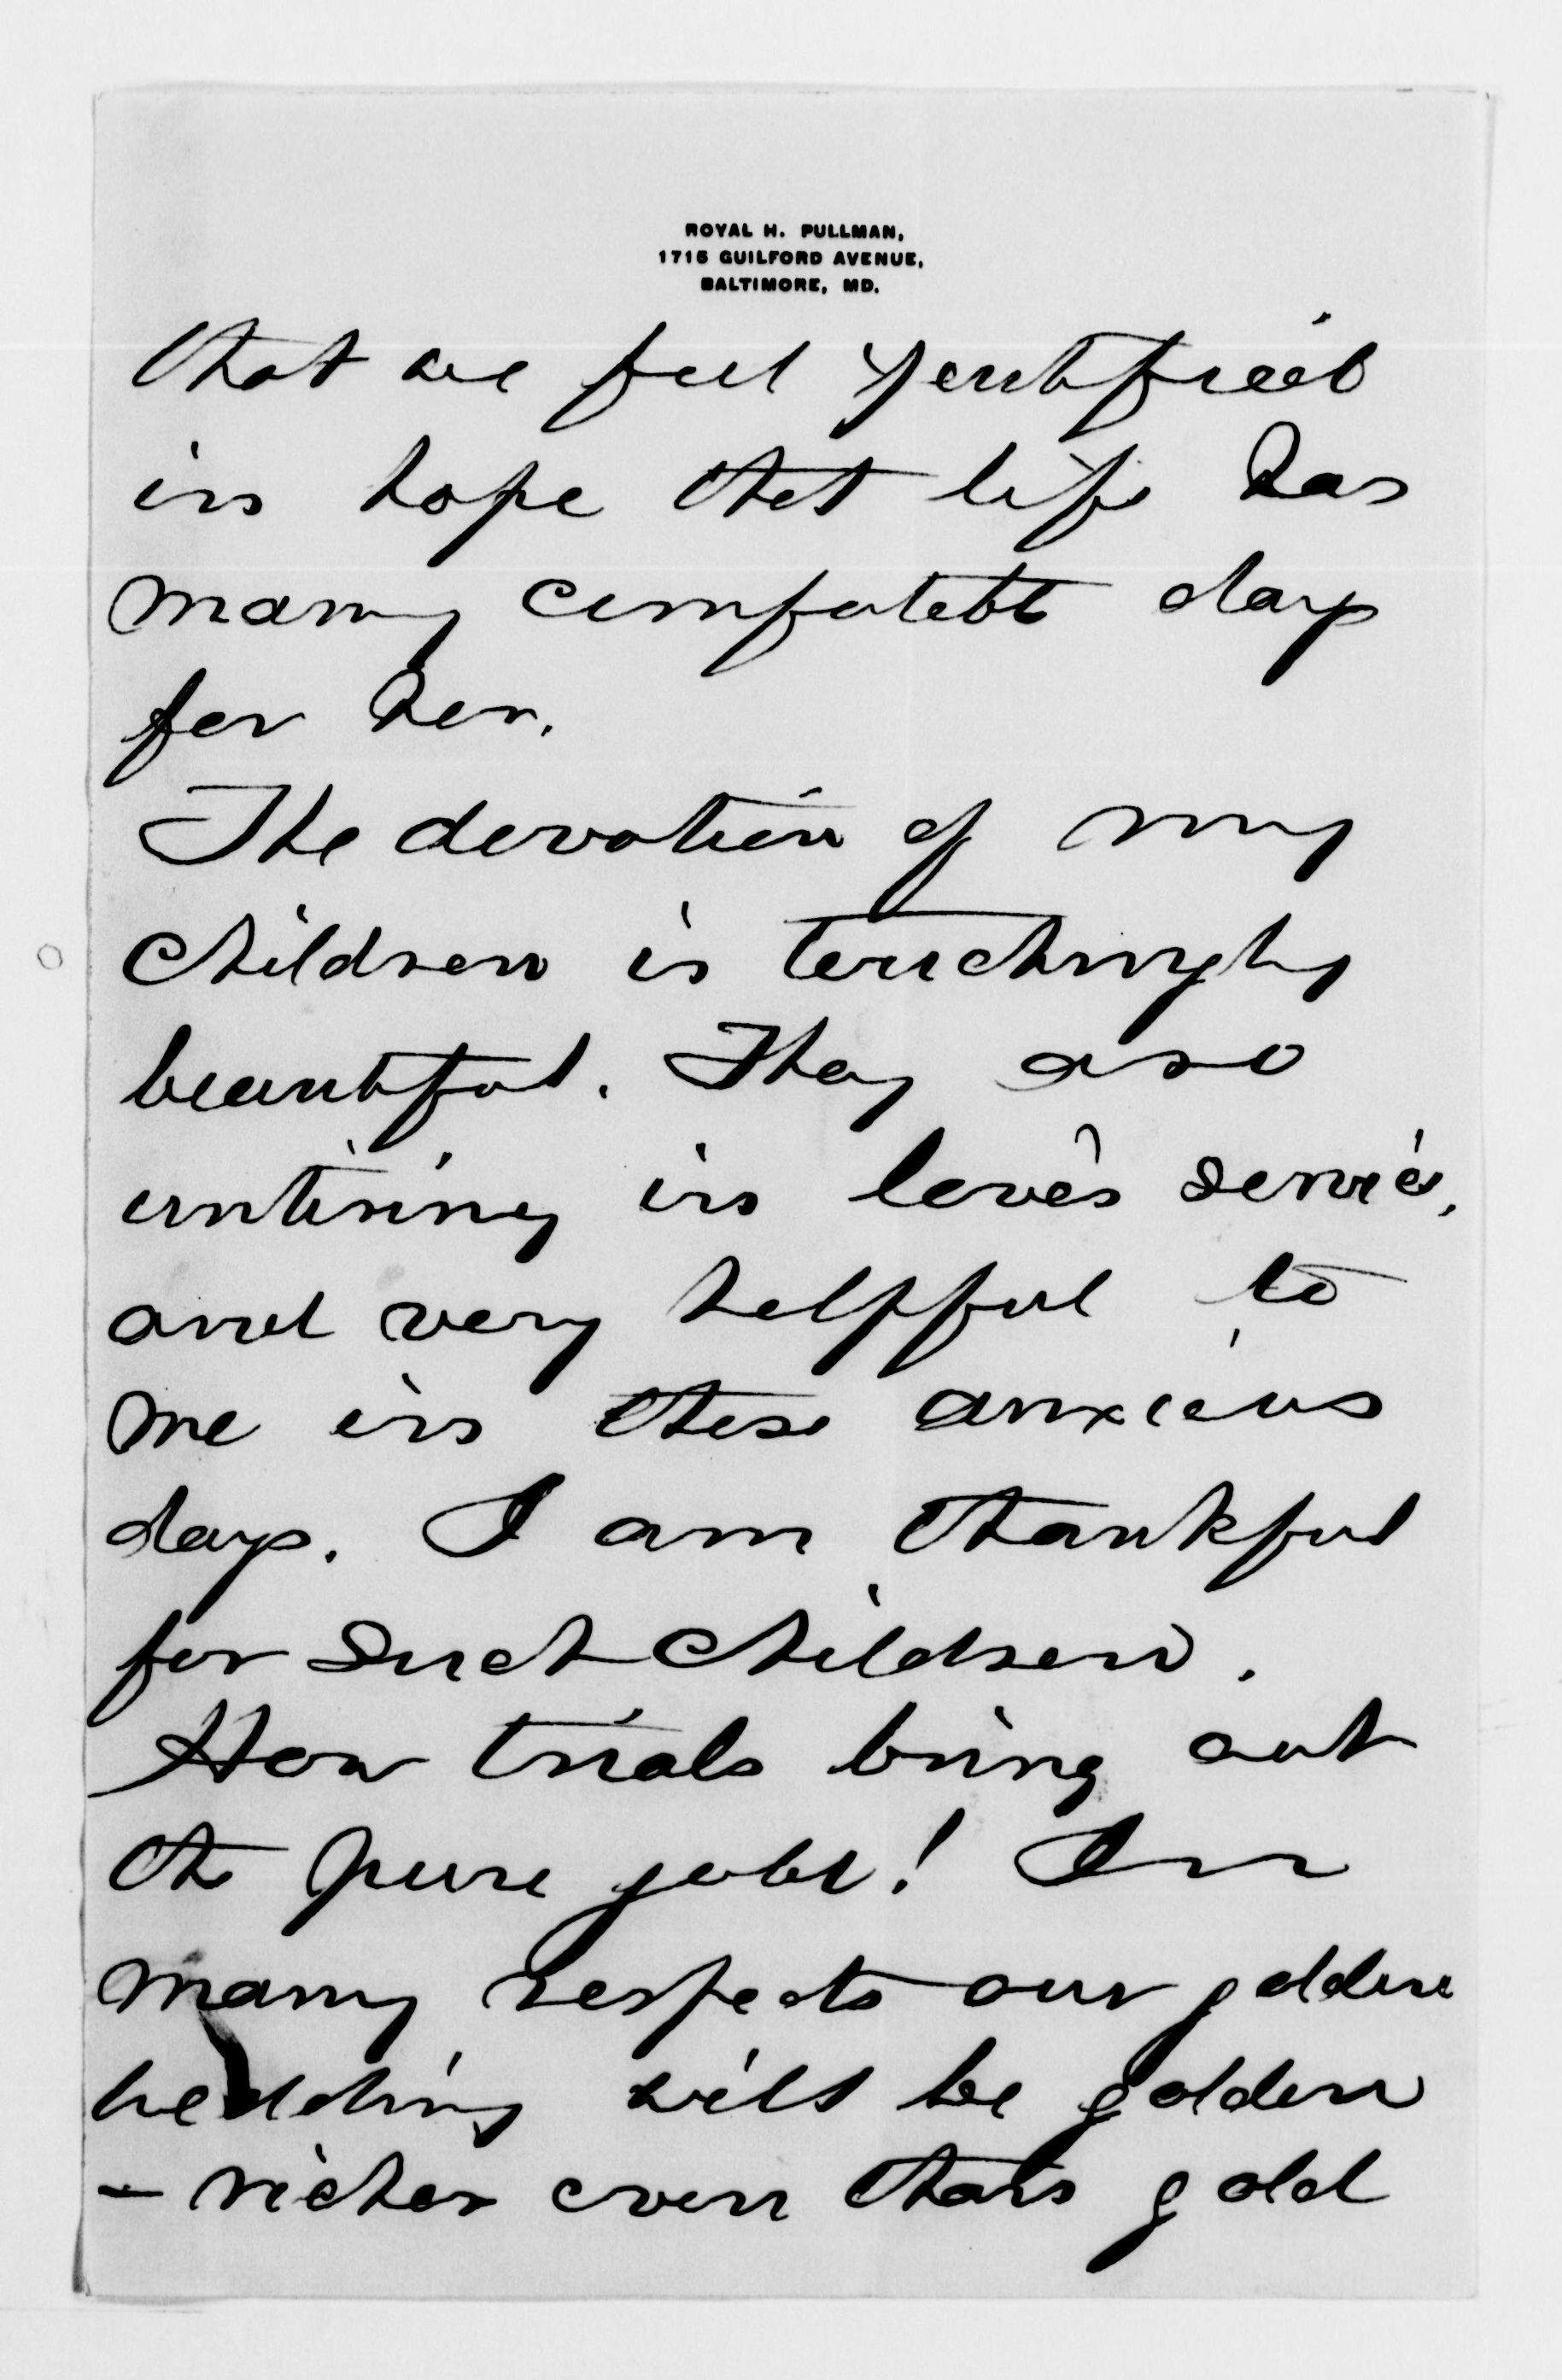 ROYAL H. PULLMAN,
1715 GUILFORD AVENUE,
BALTIMORE, MD.
that we feel justified
in hope that life has
many comfortable days
for her.
The devotion of my
children is touchingly
beautiful. They are
untiring in love's service,
and very helpful to
me in these anxious
days. I am thankful
for such children.
How trials bring out
the pure gold! In
many respects our golden
wedding will be golden
- richer even than gold